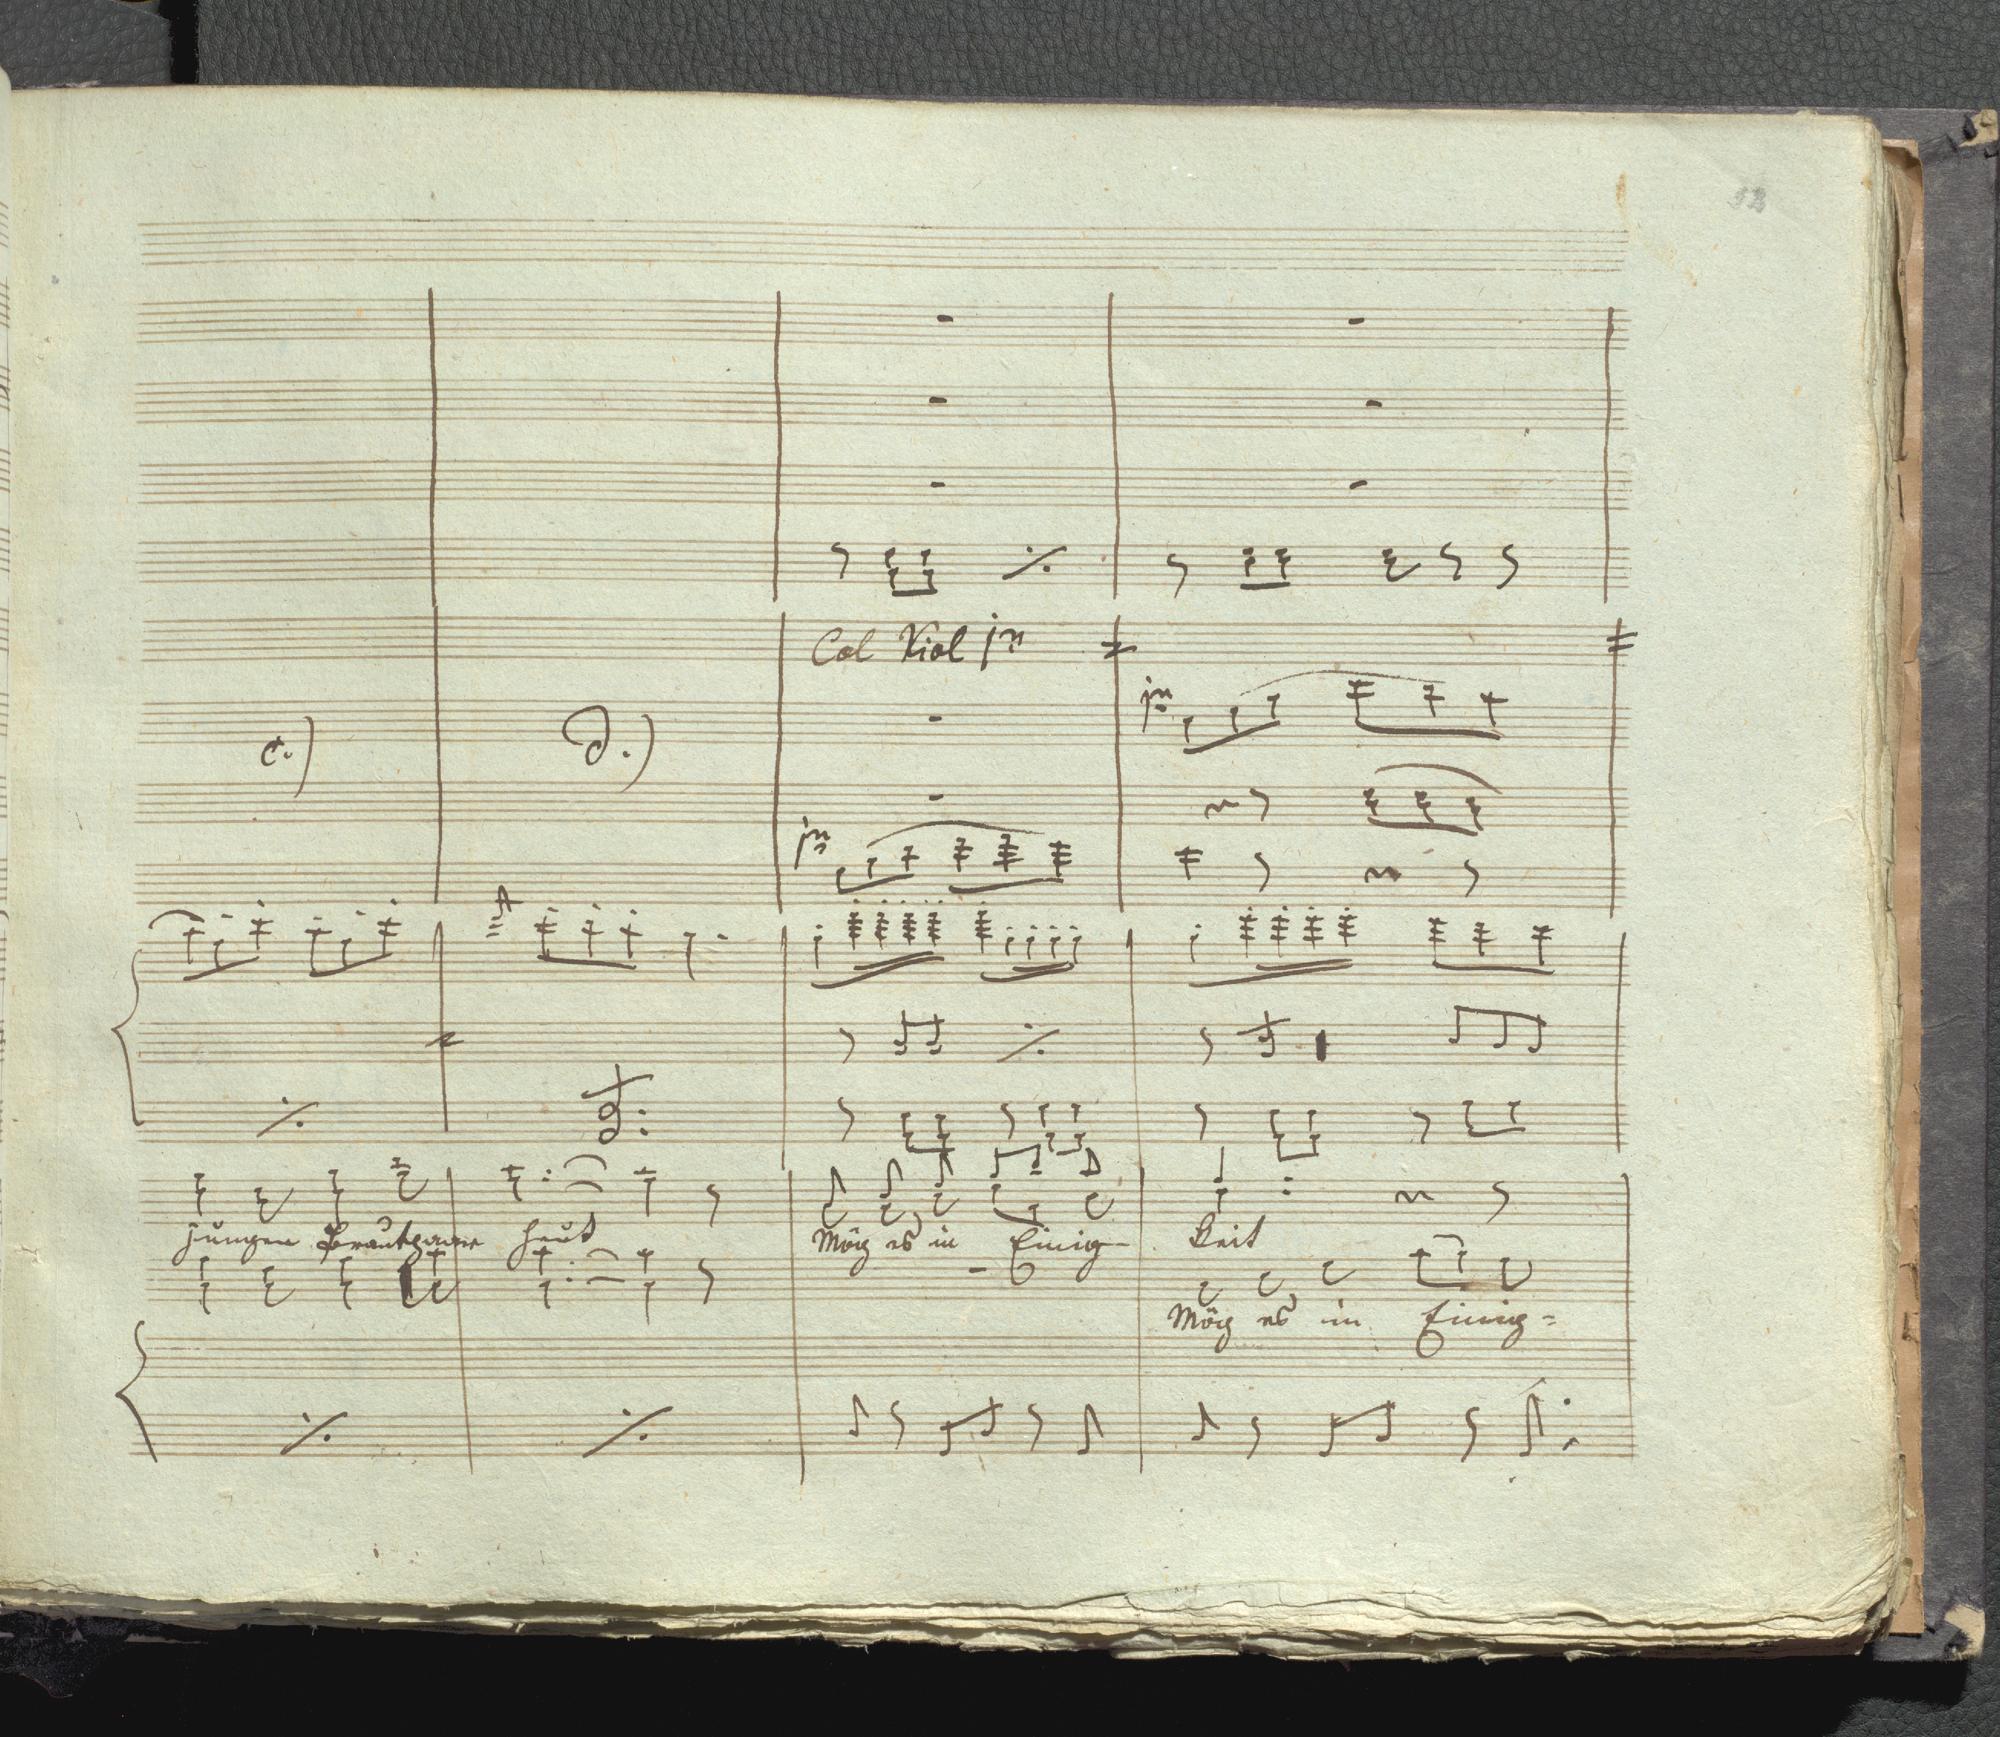 Col Viol jmo
c.) d.)
jmo
jmo
jungen Brautpaare heut Mög es in Einig- keit
Mög es in Einig=